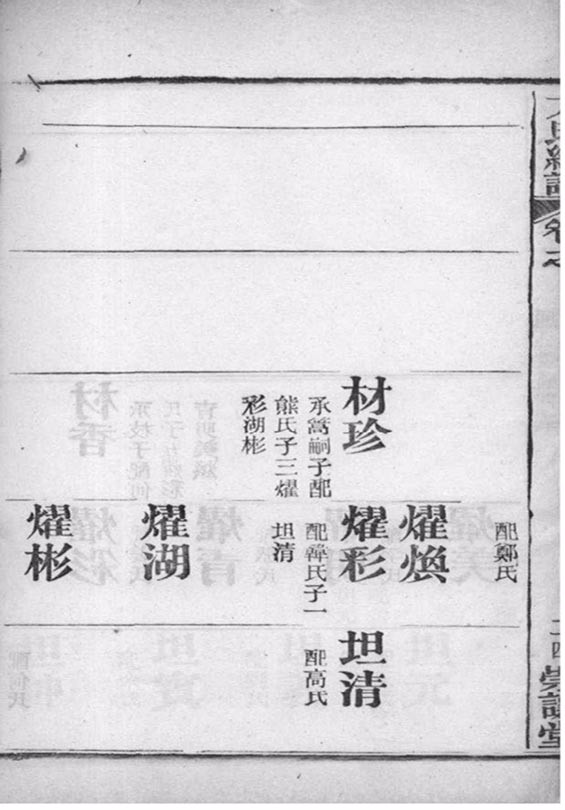 氏統譜
卷之
二四
崇讓堂
配鄭氏
材珍
承嵩嗣子配
熊氏子三燿
彩湖彬
燿煥
燿彩
配韓氏子一
坦清
燿湖
燿彬
坦清
配高氏